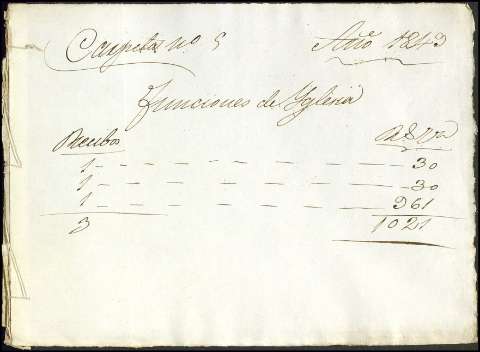 Carpeta nº 5 Año 1843
Funciones de Yglesia
Recibos Rs Von
1 — — — — — — 30
1 — — — — — — 30
1 — — — — — — 961
3 1021